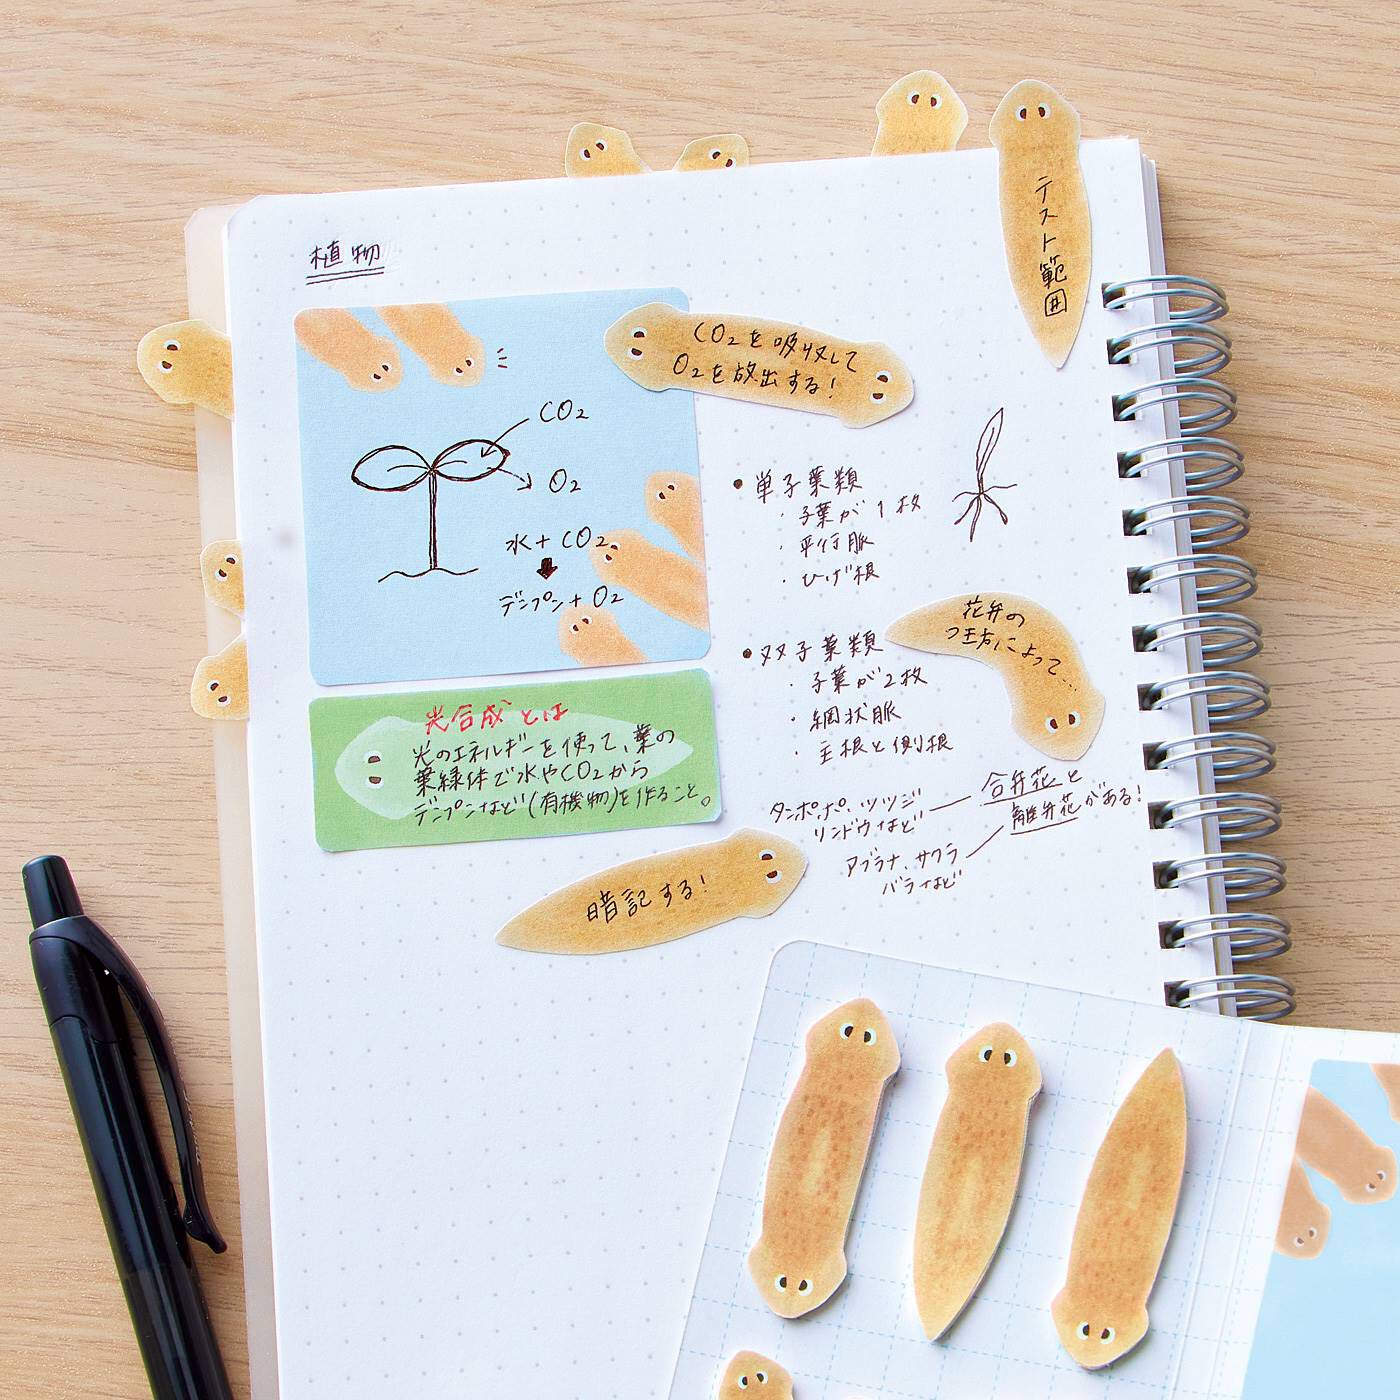 テスト範囲
植物
CO₂を吸収して
O₂を放出する!
CO₂
O₂
水+CO₂
デンプン+O₂
・単子葉類
・子葉が1枚
・平行脈
・ひげ根
花弁の
つき方によって…
・双子葉類
・子葉が2枚
・網状脈
・主根と側根
光合成とは
光のエネルギーを使って、葉の
葉緑体で水やCO₂から
デンプンなど(有機物)を作ること。
タンポポ、ツツジ
リンドウなど
合弁花と
離弁花がある!
アブラナ、サクラ
バラなど
暗記する!